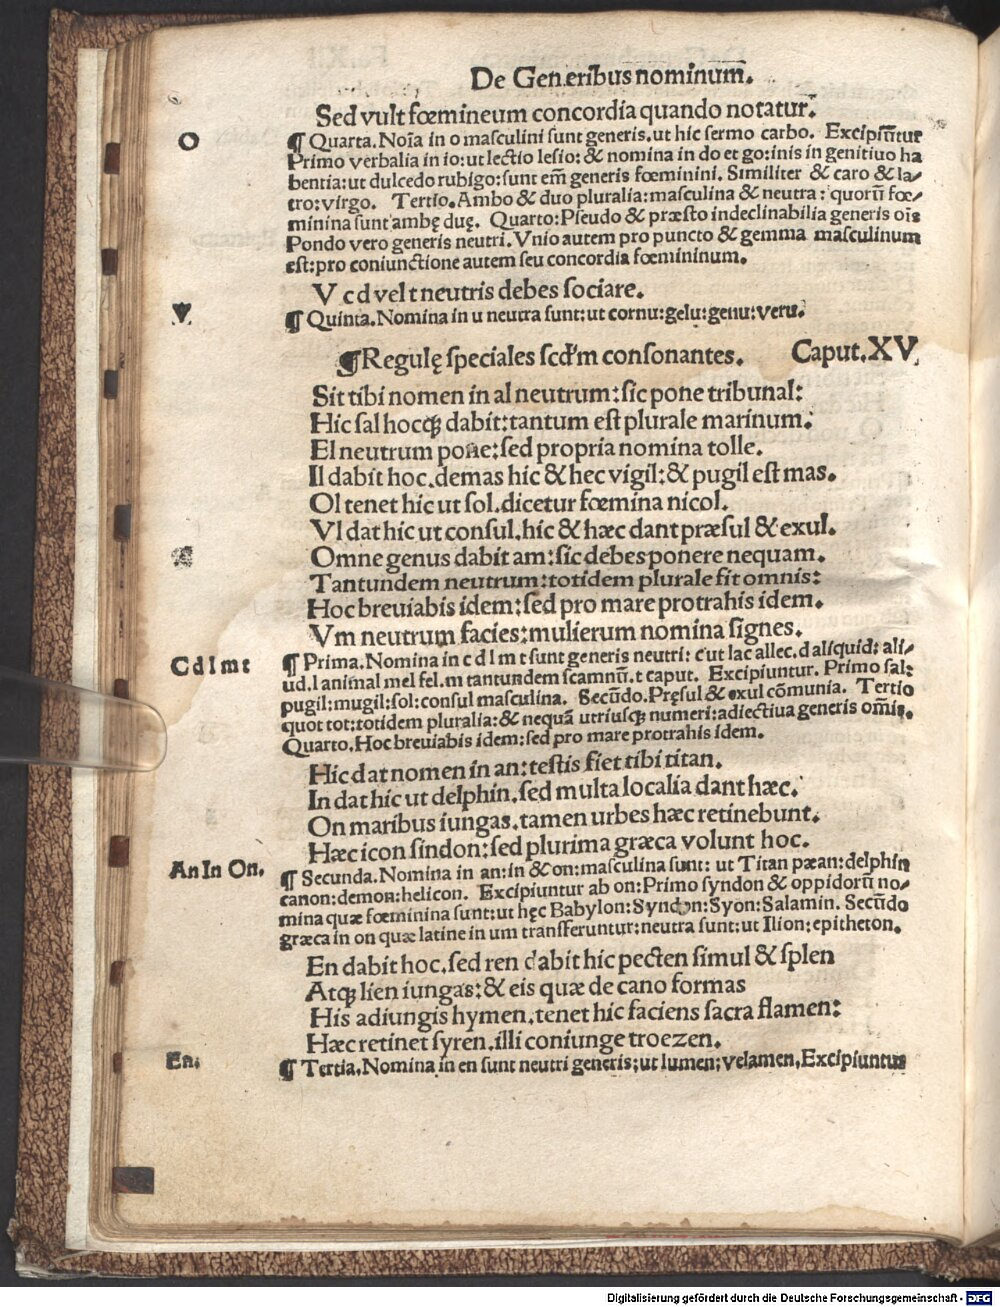 De Generibus nominum.
Sed vult fœmineum concordia quando notatur.
O
¶ Quarta. Noīa in o masculini sunt generis. ut hic sermo carbo. Excipiūtur
Primo verbalia in io: ut lectio lesio: & nomina in do et go: inis in genitiuo ha
bentia: ut dulcedo rubigo: sunt em̄ generis fœminini. Similiter & caro & la⸗
tro: virgo. Tertio. Ambo & duo pluralia: masculina & neutra: quorū fœ⸗
minina sunt ambę duę. Quarto: Pseudo & præsto indeclinabilia generis oīs
Pondo vero generis neutri. Vnio autem pro puncto & gemma masculinum
est: pro coniunctione autem seu concordia fœmininum.
V c d vel t neutris debes sociare.
V.
¶ Quinta. Nomina in u neutra sunt: ut cornu: gelu: genu: veru.
¶ Regulę speciales scd'm consonantes. Caput. XV.
Sit tibi nomen in al neutrum: sic pone tribunal:
Hic sal hocqꝫ dabit: tantum est plurale marinum.
El neutrum pone: sed propria nomina tolle.
Il dabit hoc. demas hic & hec vigil: & pugil est mas.
Ol tenet hic ut sol. dicetur fœmina nicol.
Vl dat hic ut consul. hic & hæc dant præsul & exul.
Omne genus dabit am: sic debes ponere nequam.
Tantundem neutrum: totidem plurale sit omnis:
Hoc breuiabis idem: sed pro mare protrahis idem.
Vm neutrum facies: mulierum nomina signes.
C d l m t
¶ Prima. Nomina in c d l m t sunt generis neutri: c ut lac allec. d aliquid: ali⸗
ud. l animal mel fel. m tantundem scamnū. t caput. Excipiuntur. Primo sal:
pugil: mugil: sol: consul masculina. Secūdo. Pręsul & exul cōmunia. Tertio
quot tot: totidem pluralia: & nequā utriusqꝫ numeri: adiectiua generis om̄is.
Quarto. Hoc breuiabis idem: sed pro mare protrahis idem.
Hic dat nomen in an: testis fiet tibi titan.
In dat hic ut delphin. sed multa localia dant hæc.
On maribus iungas. tamen urbes hæc retinebunt.
Hæc icon sindon: sed plurima græca volunt hoc.
An In On.
¶ Secunda. Nomina in an: in & on: masculina sunt: ut Titan pæan: delphin
canon: demon: helicon. Excipiuntur ab on: Primo syndon & oppidorū no⸗
mina quæ fœminina sunt: ut hęc Babylon: Syndon: Syon: Salamin. Secūdo
græca in on quæ latine in um transferuntur: neutra sunt: ut Ilion: epitheton.
En dabit hoc. sed ren dabit hic pecten simul & splen
Atqꝫ lien iungas: & eis quæ de cano formas
His adiungis hymen. tenet hic faciens sacra flamen:
Hæc retinet syren. illi coniunge troezen.
En.
¶ Tertia. Nomina in en sunt neutri generis: ut lumen: velamen. Excipiuntur
Digitalisierung gefördert durch die Deutsche Forschungsgemeinschaft - DFG